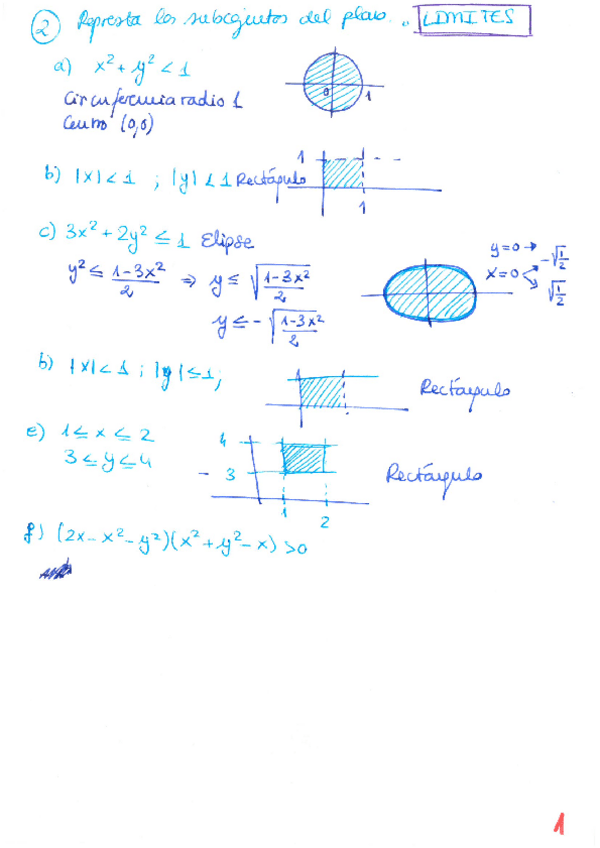 2 Representa los subconjuntos del plano. LIMITES
a) x² + y² < 1
Circunferencia radio 1
Centro (0,0)
0 1
b) |x| < 1 ; |y| < 1 Rectángulo
1
1
c) 3x² + 2y² ≤ 1 Elipse
y² ≤ (1-3x²)/2 ⇒ y ≤ √((1-3x²)/2)
y ≤ -√((1-3x²)/2)
y=0 → -√(1/2)
x=0 √(1/2)
b) |x| < 1 ; |y| ≤ 1;
Rectángulo
e) 1 ≤ x ≤ 2
3 ≤ y ≤ 4
4
3
1 2
Rectángulo
f) (2x - x² - y²)(x² + y² - x) > 0
1